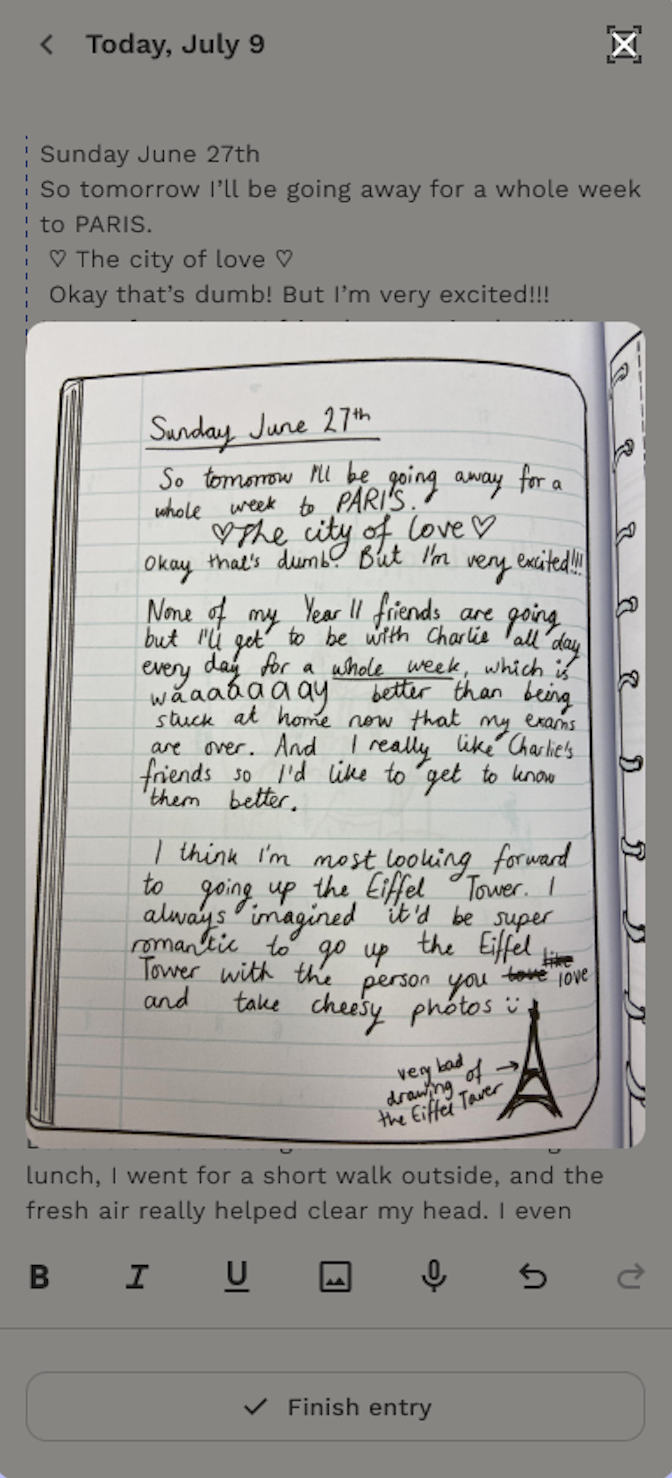 Today, July 9
Sunday June 27th
So tomorrow I’ll be going away for a whole week
to PARIS.
♡ The city of love ♡
Okay that’s dumb! But I’m very excited!!!
Sunday June 27th
So tomorrow I'll be going away for a
whole week to PARIS.
♡The city of love♡
Okay that's dumb! But I'm very excited!!!
None of my Year 11 friends are going
but I'll get to be with Charlie all day
every day for a whole week, which is
waaaaaaay better than being
stuck at home now that my exams
are over. And I really like Charlie's
friends so I'd like to get to know
them better.
I think I'm most looking forward
to going up the Eiffel Tower. I
always imagined it'd be super
romantic to go up the Eiffel
like
Tower with the person you love love
and take cheesy photos :)
very bad
drawing of →
the Eiffel Tower
lunch, I went for a short walk outside, and the
fresh air really helped clear my head. I even
B I U
Finish entry